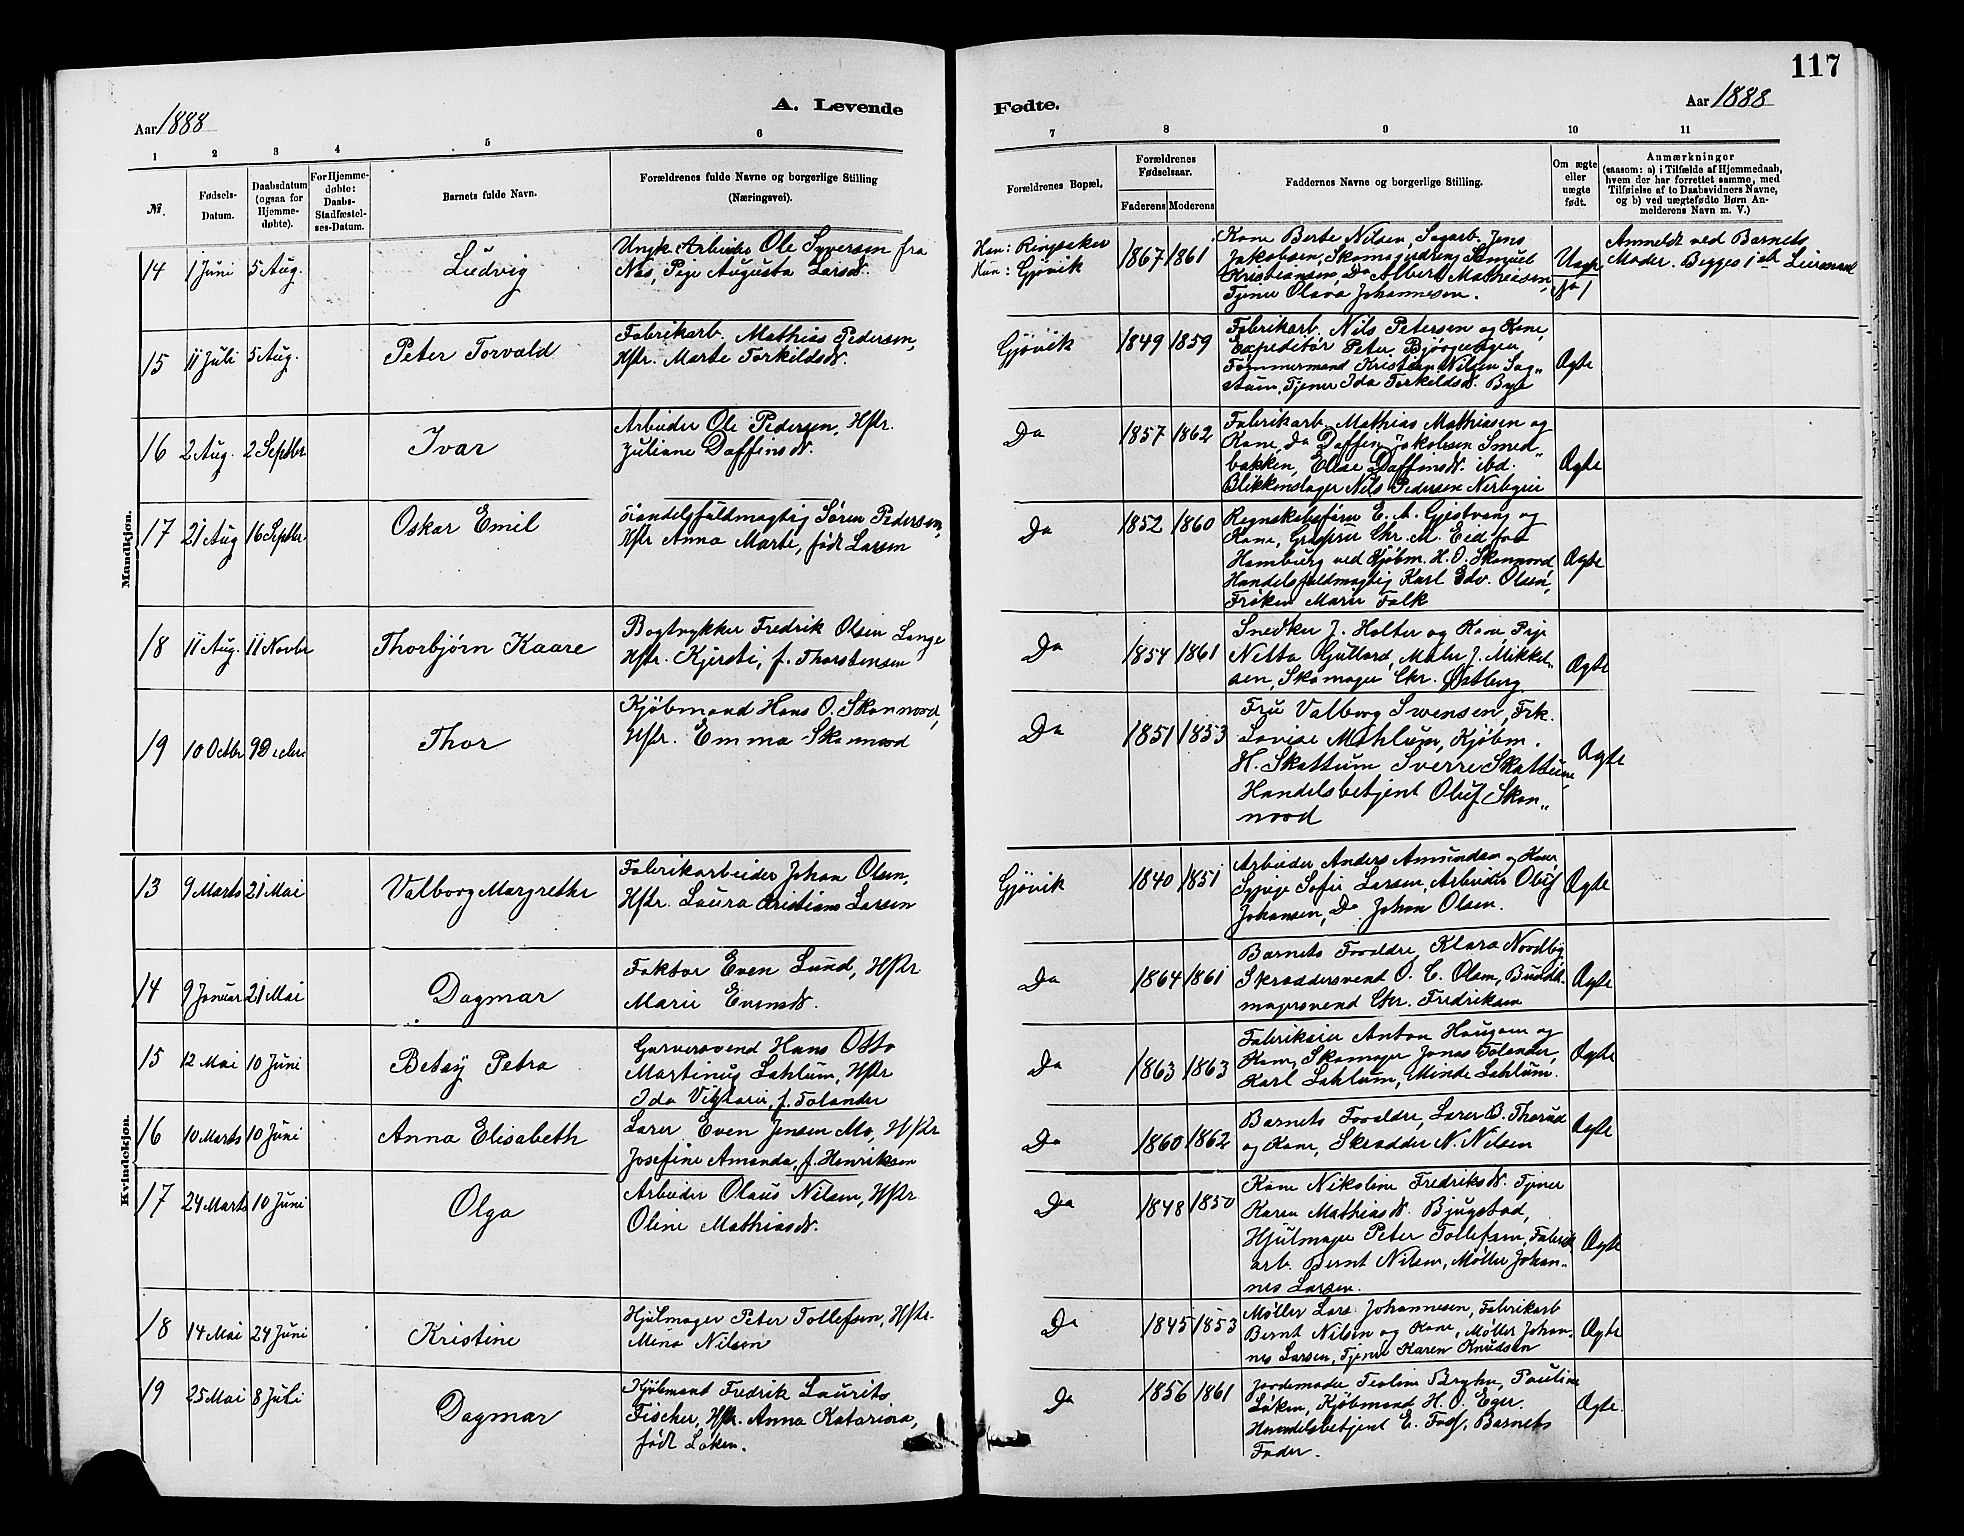 117
Aar 1888
A. Levende
Fødte.
Aar 1888
1 2 3 4 5 6 7 8 9 10 11
№
Fødsels-
Datum.
Daabsdatum
(ogsaa for
Hjemme-
døbte).
For Hjemme-
døbte:
Daabs-
Stadfæstel-
ses-Datum.
Barnets fulde Navn.
Forældrenes fulde Navne og borgerlige Stilling
(Næringsvei).
Forældrenes Bopæl.
Forældrenes
Fødselsaar.
Faderens Moderens
Faddernes Navne og borgerlige Stilling.
Om ægte
eller
uægte
født.
Anmærkninger
(saasom: a) i Tilfælde af Hjemmedaab,
hvem der har forrettet samme, med
Tilføielse af to Daabsvidners Navne,
og b) ved uægtefødte Børn An-
melderens Navn m. V.)
Mandkjøn.
14 1 Juni 5 Aug. Ludvig
Ungk. Arbeider Ole Syversen fra
Næs, Pige Augusta Larsd.
Han: Ringsaker
Hun: Gjøvik
1867 1861
Kone Berte Nilsen, Sagarb. Jens
Jakobsen, Skomagerdreng Samuel
Kristiansen, Do Albert Mathiasen,
Tjener Olava Johannesen.
Uægte
No 1
Anmeldt ved Barnets
Moder. Begges 1ste Leiermaal
15 11 Juli 5 Aug. Peter Torvald
Fabrikarb. Mathias Pedersen,
Hstr. Marte Torkildsd.
Gjøvik 1849 1859
Fabrikarb. Nils Petersen og Kone,
Expeditør Peter Bjørgeengen
Tømmermand Kristian Nilsen Sag-
stuen, Tjener Ida Torkildsd. Bye
Ægte
16 2 Aug. 2 Septbr Ivar
Arbeider Ole Pedersen, Hstr.
Juliane Daffinsd.
Do 1857 1862
Fabrikarb. Mathias Mathiasen og
Kone, Do Daffin Jakobsen Smed-
bakken, Elise Daffinsd. ibd.
Blikkenslager Nils Pedersen
Ægte
17 21 Aug 16 Septbr. Oskar Emil
Handelsfuldmægtig Søren Pedersen,
Hstr Anna Marte, født Larsen
Do 1852 1860
Regnskabsfører E. A. Gjestvang og
Kone, Chr. M. Eid fra
Hamburg ved Kjøbm. H. O. Skonnord
Handelsfuldmægtig Karl Edv. Olsen,
Frøken Marie Falk
Ægte
18 11 Aug. 11 Novbr Thorbjørn Kaare
Bogtrykker Fredrik Olsen Lange
Hstr. Kjersti, f. Thorstensen
Do 1854 1861
Snedker J. Holter og Kone Pige
Netta Gjullord, Maler J. Mikkel-
sen, Skomager Chr. Østberg
Ægte
19 10 Octbr 9 Decbr. Thor
Kjøbmand Hans O. Skonnord,
Hstr. Emma Skonnord
Do 1851 1853
Fru Valborg Swensen, Frk.
Lovise Mæhlum, Kjøbm.
H. Skattum Sverre Skattum,
Handelsbetjent Oluf Skon-
nord
Ægte
Kvindekjøn.
13 9 Marts 21 Mai Valborg Margrethe
Fabrikarbeider Johan Olsen,
Hstr. Laura Kristiane Larsen
Gjøvik 1840 1851
Arbeider Anders Amundsen og Kone,
Sypige Sofie Larsen, Arbeider Oluf
Johansen, Do Johan Olsen.
Ægte
14 9 Januar 21 Mai Dagmar
Faktor Even Lund, Hstr
Marie Evensd.
Do 1864 1861
Barnets Forældre, Klara Nordby,
Skræddersvend O. C. Olsen, Bundt-
magersvend Chr. Fredriksen
Ægte
15 12 Mai 10 Juni Betsy Petra
Garversvend Hans Otto
Martinus Sahlum, Hstr
Ida Viktoria, f. Tolander
Do 1863 1863
Fabrikeier Anton Haugom og
Kone, Skomager Jonas Tolander,
Karl Sahlum, Minde Sahlum.
Ægte
16 10 Marts 10 Juni Anna Elisabeth
Lærer Even Jensen Mo, Hstr
Josefine Amanda, f. Henriksen
Do 1860 1862
Barnets Forældre, Lærer B. Thorud
og Kone, Skrædder N. Nilsen
Ægte
17 24 Marts 10 Juni Olga
Arbeider Olaus Nilsen, Hstr
Oline Mathiasd.
Do 1848 1850
Kone Nikoline Fredriksd. Tjener
Karen Mathiasd. Bjugstad,
Hjulmager Peter Tollefsen, Fabrik-
arb. Bernt Nilsen, Møller Johan-
nes Larsen.
Ægte
18 14 Mai 24 Juni Kristine
Hjulmager Peter Tollefsen, Hstr.
Mina Nilsen
Do 1845 1853
Møller Lars Johannesen, Fabrikarb
Bernt Nilsen og Kone, Møller Johan-
nes Larsen, Tjener Karen Knudsen
Ægte
19 25 Mai 8 Juli Dagmar
Kjøbmand Fredrik Laurits
Fischer, Hstr. Anna Katarina,
født Løken.
Do 1856 1861
Jordemoder Teoline Bryhn, Pauline
Løken, Kjøbmand H. O. Eger.
Handelsbetjent E. Foss, Barnets
Fader.
Ægte.